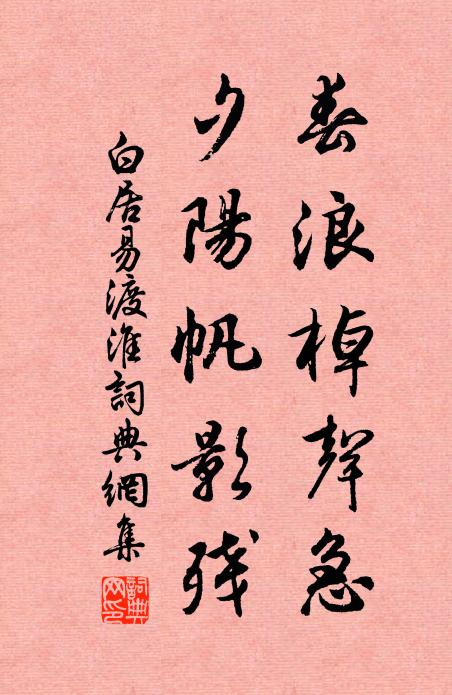 春浪棹聲急
夕陽帆影残
白居易渡淮詞典網集
詞典網印